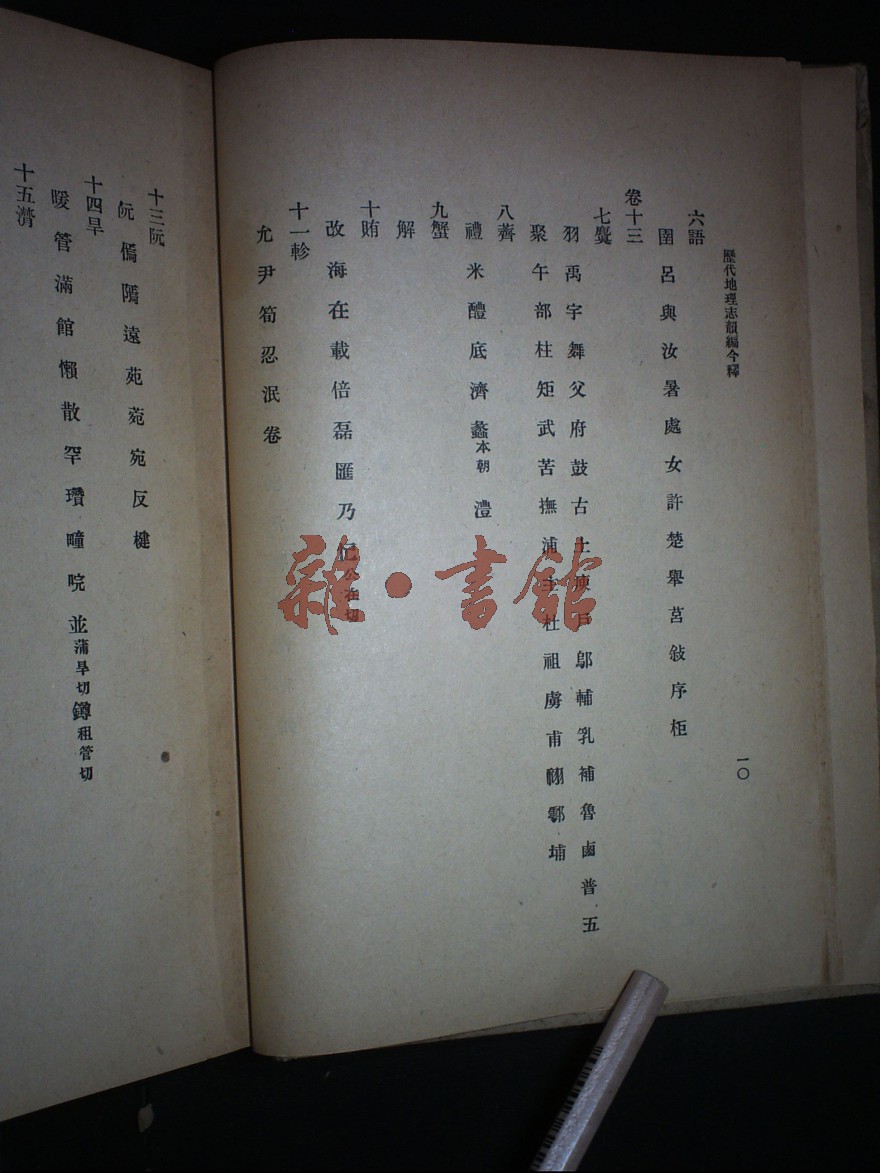 歷代地理志韻編今釋
一〇
六語
圉呂與汝暑處女許楚舉莒敍序柜
卷十三
七麌
羽禹宇舞父府鼓古土庾戶鄔輔乳補魯鹵普五
聚午部柱矩武苦撫浦主杜祖虜甫栩鄠埔
八薺
禮米醴底濟蠡本朝澧
九蟹
解
十賄
改海在載倍磊匯乃公在切
十一軫
允尹筍忍泯卷
十三阮
阮傿隝遠苑菀宛反楗
十四旱
暖管滿館懶散罕瓚疃晥並蒲旱切鐏祖管切
十五潸
雜·書館